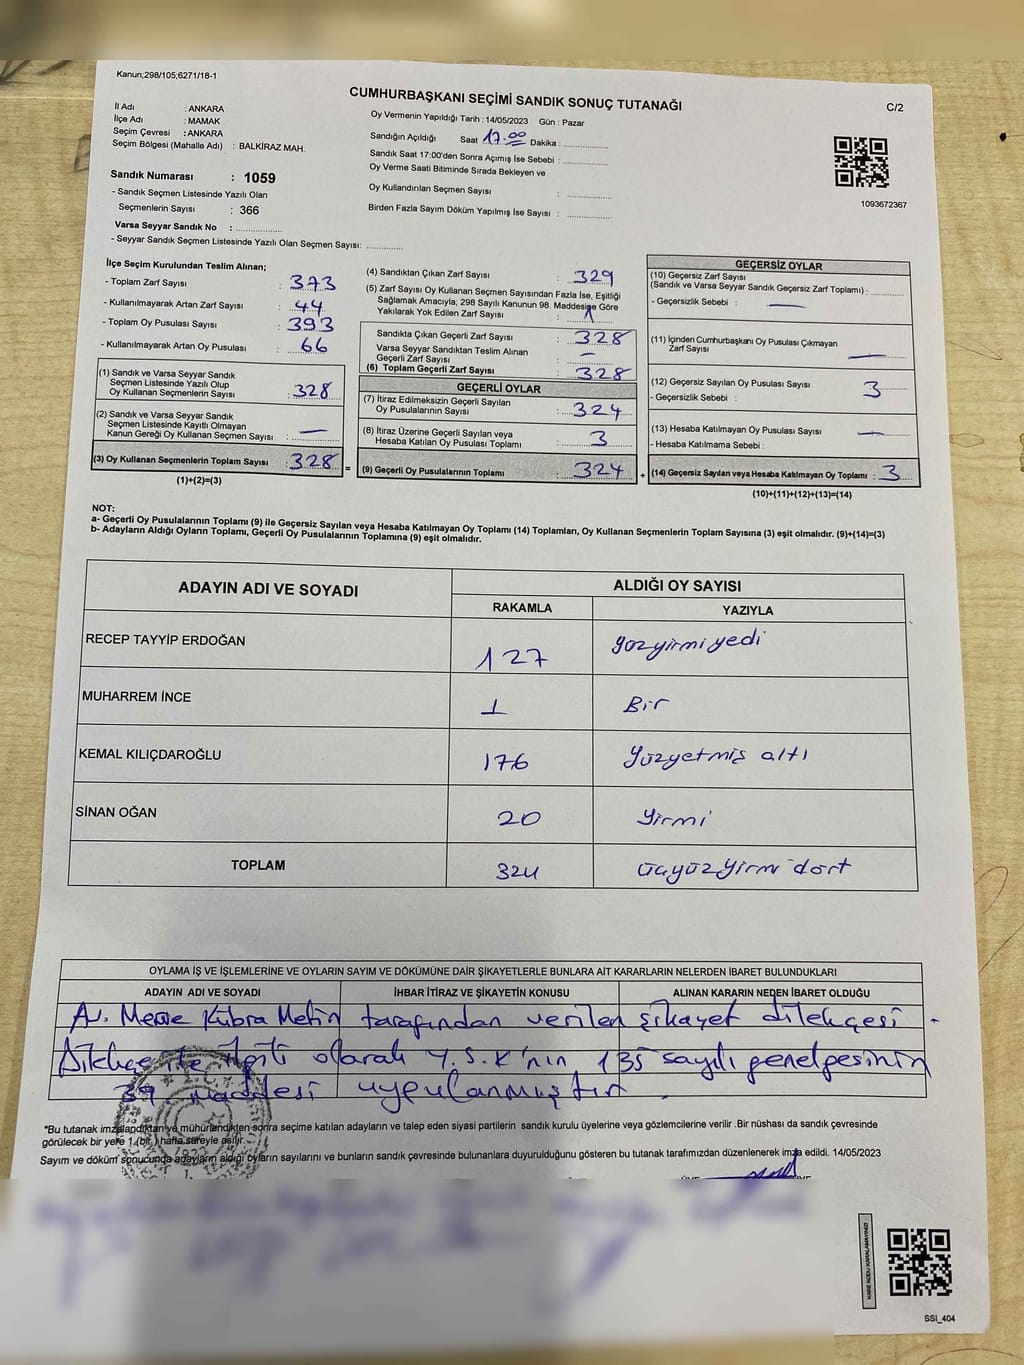 Kanun;298/105;6271/18-1
CUMHURBAŞKANI SEÇİMİ SANDIK SONUÇ TUTANAĞI
C/2
İl Adı : ANKARA
İlçe Adı : MAMAK
Seçim Çevresi : ANKARA
Seçim Bölgesi (Mahalle Adı) : BALKİRAZ MAH.
Oy Vermenin Yapıldığı Tarih : 14/05/2023 Gün : Pazar
Sandığın Açıldığı Saat 17.00 Dakika :
Sandık Saat 17:00'den Sonra Açımış İse Sebebi :
Oy Verme Saati Bitiminde Sırada Bekleyen ve
Oy Kullandırılan Seçmen Sayısı :
Birden Fazla Sayım Döküm Yapılmış İse Sayısı :
1093672367
Sandık Numarası : 1059
- Sandık Seçmen Listesinde Yazılı Olan
Seçmenlerin Sayısı : 366
Varsa Seyyar Sandık No :
- Seyyar Sandık Seçmen Listesinde Yazılı Olan Seçmen Sayısı:
İlçe Seçim Kurulundan Teslim Alınan;
- Toplam Zarf Sayısı : 373
- Kullanılmayarak Artan Zarf Sayısı : 44
- Toplam Oy Pusulası Sayısı : 393
- Kullanılmayarak Artan Oy Pusulası : 66
(1) Sandık ve Varsa Seyyar Sandık
Seçmen Listesinde Yazılı Olup
Oy Kullanan Seçmenlerin Sayısı : 328
(2) Sandık ve Varsa Seyyar Sandık
Seçmen Listesinde Kayıtlı Olmayan
Kanun Gereği Oy Kullanan Seçmen Sayısı : —
(3) Oy Kullanan Seçmenlerin Toplam Sayısı : 328
(1)+(2)=(3)
(4) Sandıktan Çıkan Zarf Sayısı : 329
(5) Zarf Sayısı Oy Kullanan Seçmen Sayısından Fazla İse, Eşitliği
Sağlamak Amacıyla; 298 Sayılı Kanunun 98. Maddesine Göre
Yakılarak Yok Edilen Zarf Sayısı : 1
Sandıkta Çıkan Geçerli Zarf Sayısı : 328
Varsa Seyyar Sandıktan Teslim Alınan
Geçerli Zarf Sayısı : —
(6) Toplam Geçerli Zarf Sayısı : 328
GEÇERLİ OYLAR
(7) İtiraz Edilmeksizin Geçerli Sayılan
Oy Pusulalarının Sayısı : 324
(8) İtiraz Üzerine Geçerli Sayılan veya
Hesaba Katılan Oy Pusulası Toplamı : 3
= (9) Geçerli Oy Pusulalarının Toplamı : 324
GEÇERSİZ OYLAR
(10) Geçersiz Zarf Sayısı
(Sandık ve Varsa Seyyar Sandık Geçersiz Zarf Toplamı) :
- Geçersizlik Sebebi : —
(11) İçinden Cumhurbaşkanı Oy Pusulası Çıkmayan
Zarf Sayısı : —
(12) Geçersiz Sayılan Oy Pusulası Sayısı : 3
- Geçersizlik Sebebi :
(13) Hesaba Katılmayan Oy Pusulası Sayısı : —
- Hesaba Katılmama Sebebi :
+ (14) Geçersiz Sayılan veya Hesaba Katılmayan Oy Toplamı : 3
(10)+(11)+(12)+(13)=(14)
NOT:
a- Geçerli Oy Pusulalarının Toplamı (9) ile Geçersiz Sayılan veya Hesaba Katılmayan Oy Toplamı (14) Toplamları, Oy Kullanan Seçmenlerin Toplam Sayısına (3) eşit olmalıdır. (9)+(14)=(3)
b- Adayların Aldığı Oyların Toplamı, Geçerli Oy Pusulalarının Toplamına (9) eşit olmalıdır.
ADAYIN ADI VE SOYADI
ALDIĞI OY SAYISI
RAKAMLA YAZIYLA
RECEP TAYYİP ERDOĞAN 127 yüzyirmiyedi
MUHARREM İNCE 1 Bir
KEMAL KILIÇDAROĞLU 176 yüzyetmiş altı
SİNAN OĞAN 20 yirmi
TOPLAM 324 üçyüzyirmi dört
OYLAMA İŞ VE İŞLEMLERİNE VE OYLARIN SAYIM VE DÖKÜMÜNE DAİR ŞİKAYETLERLE BUNLARA AİT KARARLARIN NELERDEN İBARET BULUNDUKLARI
ADAYIN ADI VE SOYADI İHBAR İTİRAZ VE ŞİKAYETİN KONUSU ALINAN KARARIN NEDEN İBARET OLDUĞU
Av. Merve Kübra Metin tarafından verilen şikayet dilekçesi.
Dilekçe ile ilgili olarak Y.S.K'nın 135 sayılı genelgesinin
39 maddesi uygulanmıştır.
*Bu tutanak imzalandıktan ve mühürlendikten sonra seçime katılan adayların ve talep eden siyasi partilerin sandık kurulu üyelerine veya gözlemcilerine verilir .Bir nüshası da sandık çevresinde
görülecek bir yere 1 (bir ) hafta süreyle asılır.
Sayım ve döküm sonucunda adayların aldığı oyların sayılarını ve bunların sandık çevresinde bulunanlara duyurulduğunu gösteren bu tutanak tarafımızdan düzenlenerek imza edildi. 14/05/2023
SSI_404